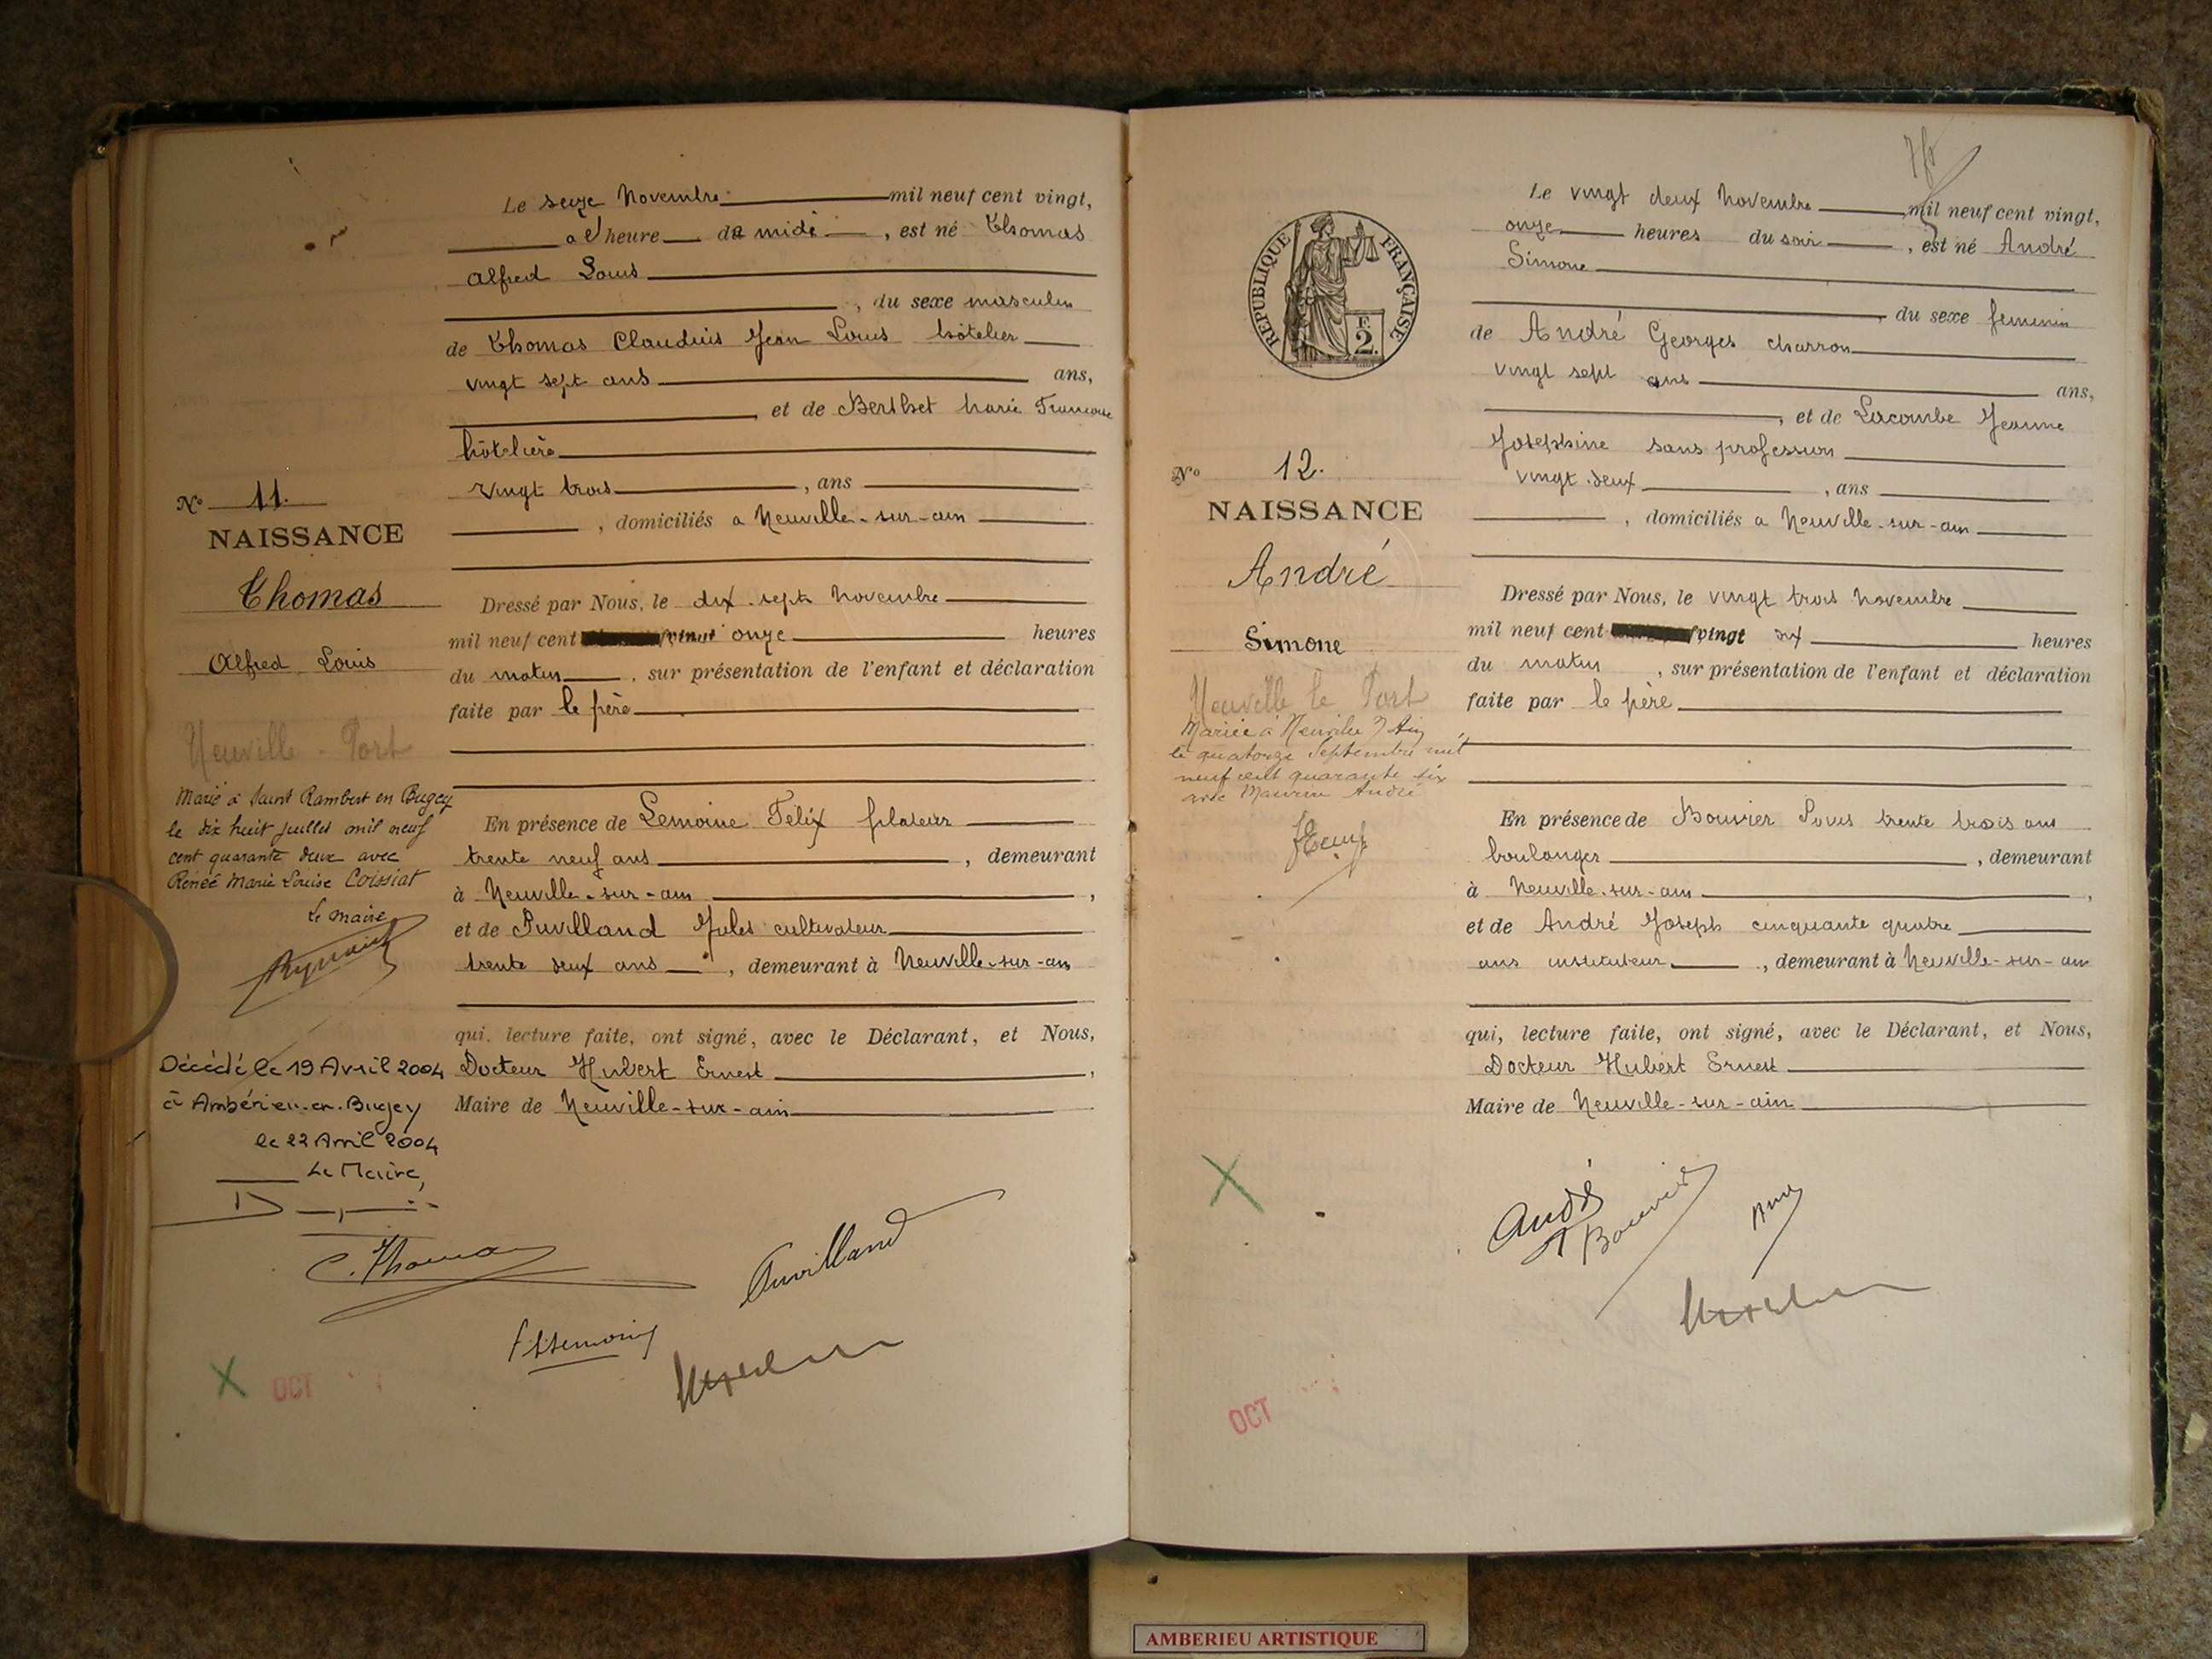 Le seize Novembre mil neuf cent vingt,
a l'heure de midi, est né Thomas
Alfred Louis
, du sexe masculin
de Thomas Claudius Jean Louis hôtelier
vingt sept ans ans,
, et de Berthet Marie Francoise
hôtelière
vingt trois, ans
, domiciliés a Neuville-sur-ain
Dressé par Nous, le dix-sept Novembre
mil neuf cent vingt onze heures
du matin, sur présentation de l'enfant et déclaration
faite par le père
En présence de Lemoine Felix
trente neuf ans, demeurant
à Neuville-sur-ain,
et de Puvilland Jules cultivateur
trente deux ans, demeurant à Neuville-sur-ain
qui, lecture faite, ont signé, avec le Déclarant, et Nous,
Docteur Hubert Ernest,
Maire de Neuville-sur-ain
No 11.
NAISSANCE
Thomas
Alfred Louis
Neuville - Port
Marié à Saint Rambert en Bugey
le dix huit juillet mil neuf
cent quarante deux avec
Renée Marie Louise Coissiat
Le maire
Décédé le 19 Avril 2004
à Ambérieu-en-Bugey
le 22 Avril 2004
Le Maire,
C. Thomas
Puvilland
OCT
Le vingt deux Novembre mil neuf cent vingt,
onze heures du soir, est né André
Simone
, du sexe feminin
de André Georges charron
vingt sept ans ans,
, et de Lacombe Jeanne
Josephine sans profession
vingt deux, ans
, domiciliés a Neuville-sur-ain
Dressé par Nous, le vingt trois Novembre
mil neuf cent vingt dix heures
du matin, sur présentation de l'enfant et déclaration
faite par le père
En présence de Bouvier Louis trente trois ans
boulanger, demeurant
à Neuville-sur-ain,
et de André Joseph cinquante quatre
ans instituteur, demeurant à Neuville-sur-ain
qui, lecture faite, ont signé, avec le Déclarant, et Nous,
Docteur Hubert Ernest
Maire de Neuville-sur-ain
REPUBLIQUE FRANÇAISE
F.
2.
No 12.
NAISSANCE
André
Simone
Neuville le Port
Mariée à Neuville s/ Ain
le quatorze Septembre mil
neuf cent quarante six
avec Maurice André
André
Bouvier
OCT
AMBERIEU ARTISTIQUE